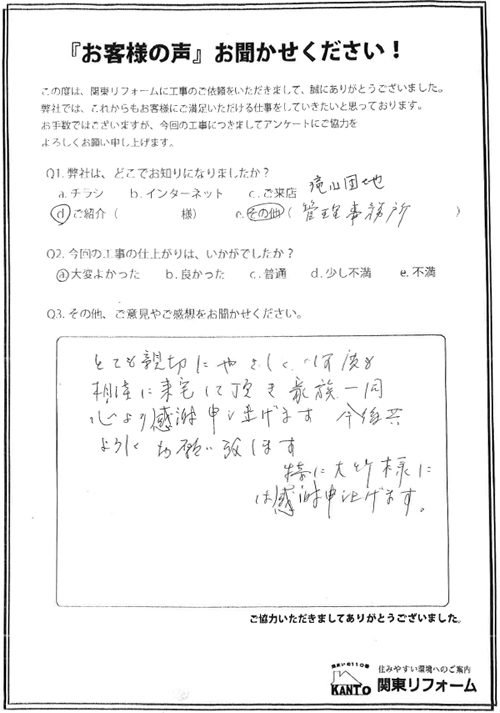 『お客様の声』お聞かせください！
この度は、関東リフォームに工事のご依頼をいただきまして、誠にありがとうございました。
弊社では、これからもお客様にご満足いただける仕事をしていきたいと思っております。
お手数ではございますが、今回の工事につきましてアンケートにご協力を
よろしくお願い申し上げます。
Q1. 弊社は、どこでお知りになりましたか？
a. チラシ b. インターネット c. ご来店 滝山団地
d. ご紹介（ 様） e. その他（管理事務所）
Q2. 今回の工事の仕上がりは、いかがでしたか？
a. 大変よかった b. 良かった c. 普通 d. 少し不満 e. 不満
Q3. その他、ご意見やご感想をお聞かせください。
とても親切にやさしく 何度も
相談に来宅して頂き家族一同
心より感謝申し上げます 今後共
よろしくお願い致します
特に大竹様に
は感謝申上げます。
ご協力いただきましてありがとうございました。
住まい の110番
KANTO
住みやすい環境へのご案内
関東リフォーム